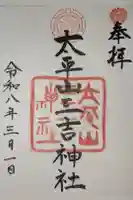 奉拝
太平山三吉神社
令和八年三月一日